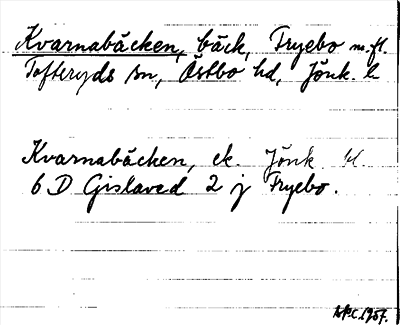 Kvarnabäcken, bäck, Fryebo m.fl.
Tofteryds sn, Östbo hd, Jönk. l
Kvarnabäcken, ek. Jönk. bl.
6 D Gislaved 2 j Fryebo.
1957.